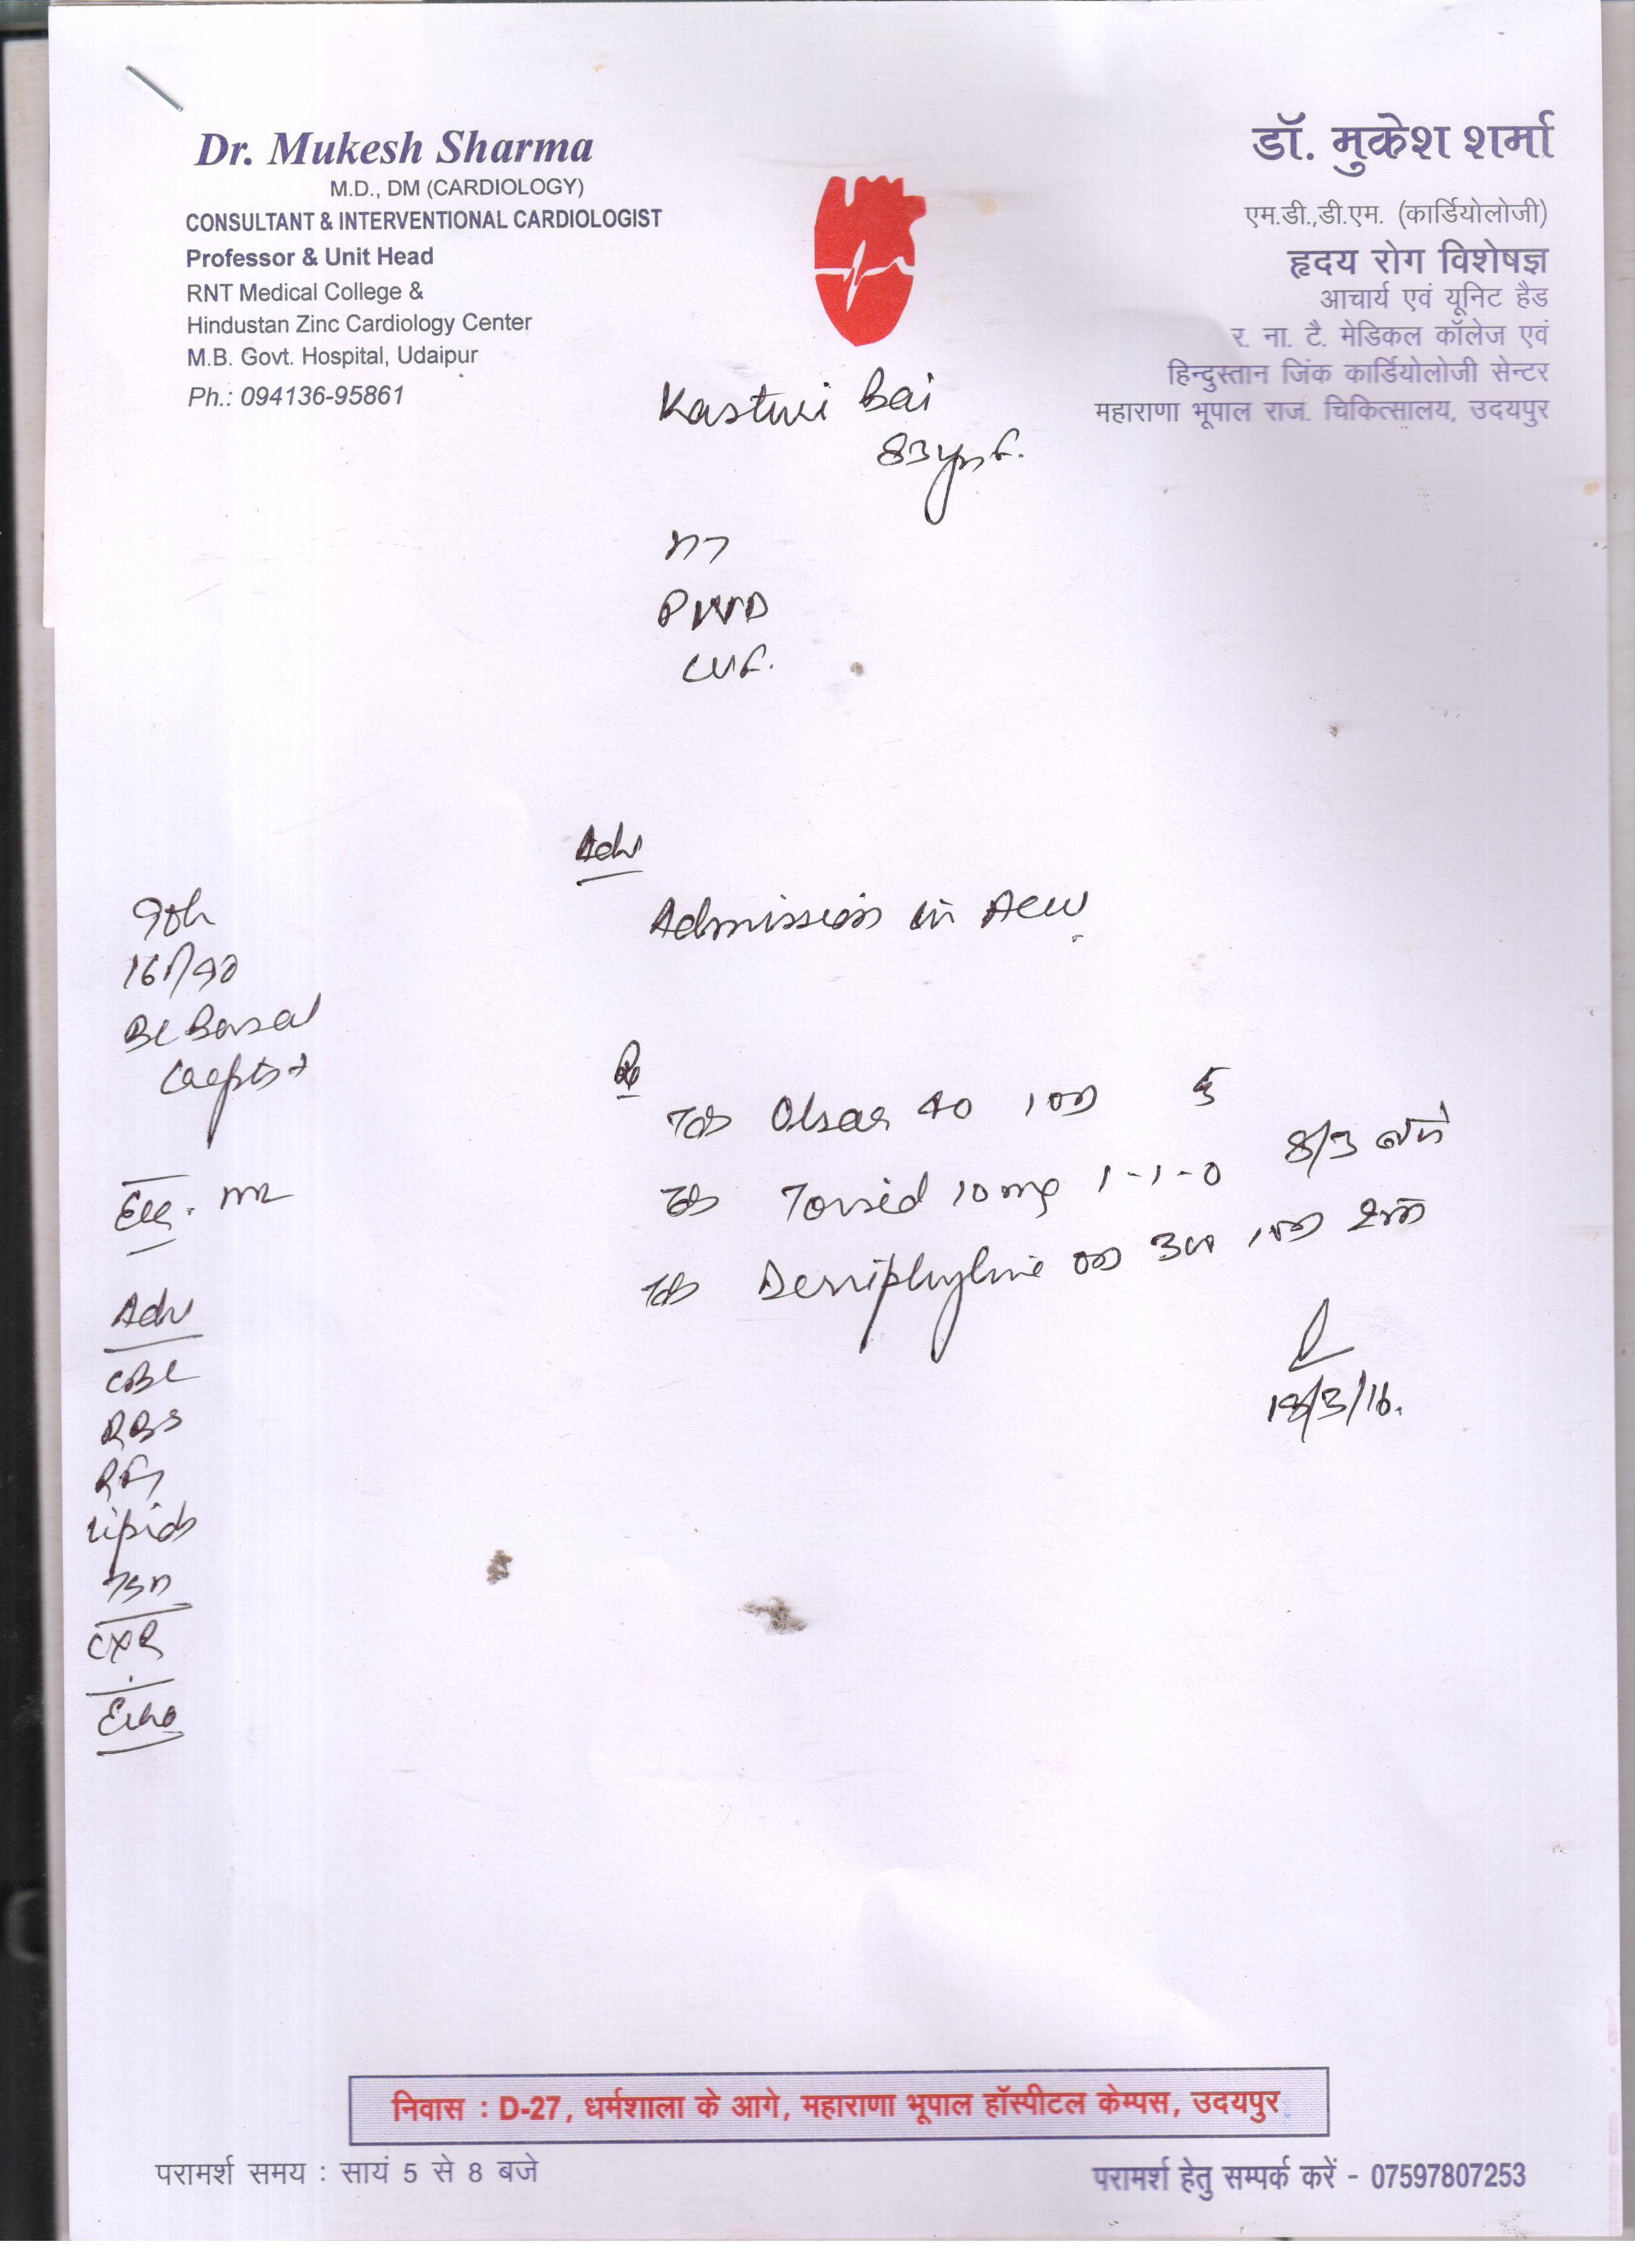 Dr. Mukesh Sharma
M.D., DM (CARDIOLOGY)
CONSULTANT & INTERVENTIONAL CARDIOLOGIST
Professor & Unit Head
RNT Medical College &
Hindustan Zinc Cardiology Center
M.B. Govt. Hospital, Udaipur
Ph.: 094136-95861
डॉ. मुकेश शर्मा
एम.डी.,डी.एम. (कार्डियोलोजी)
हृदय रोग विशेषज्ञ
आचार्य एवं यूनिट हैड
र. ना. टै. मेडिकल कॉलेज एवं
हिन्दुस्तान जिंक कार्डियोलोजी सेन्टर
महाराणा भूपाल राज. चिकित्सालय, उदयपुर
Kasturi Bai
83 yrs F.
Adv
Admission in
Basal
Adv
CBC
RBS
RFT
Lipids
CXR
Echo
Rx
Tab Olsar 40 1 OD
Tab Torsid 10 mg 1-1-0
Tab Derriphyline OD
निवास : D-27, धर्मशाला के आगे, महाराणा भूपाल हॉस्पीटल केम्पस, उदयपुर
परामर्श समय : सायं 5 से 8 बजे
परामर्श हेतु सम्पर्क करें - 07597807253